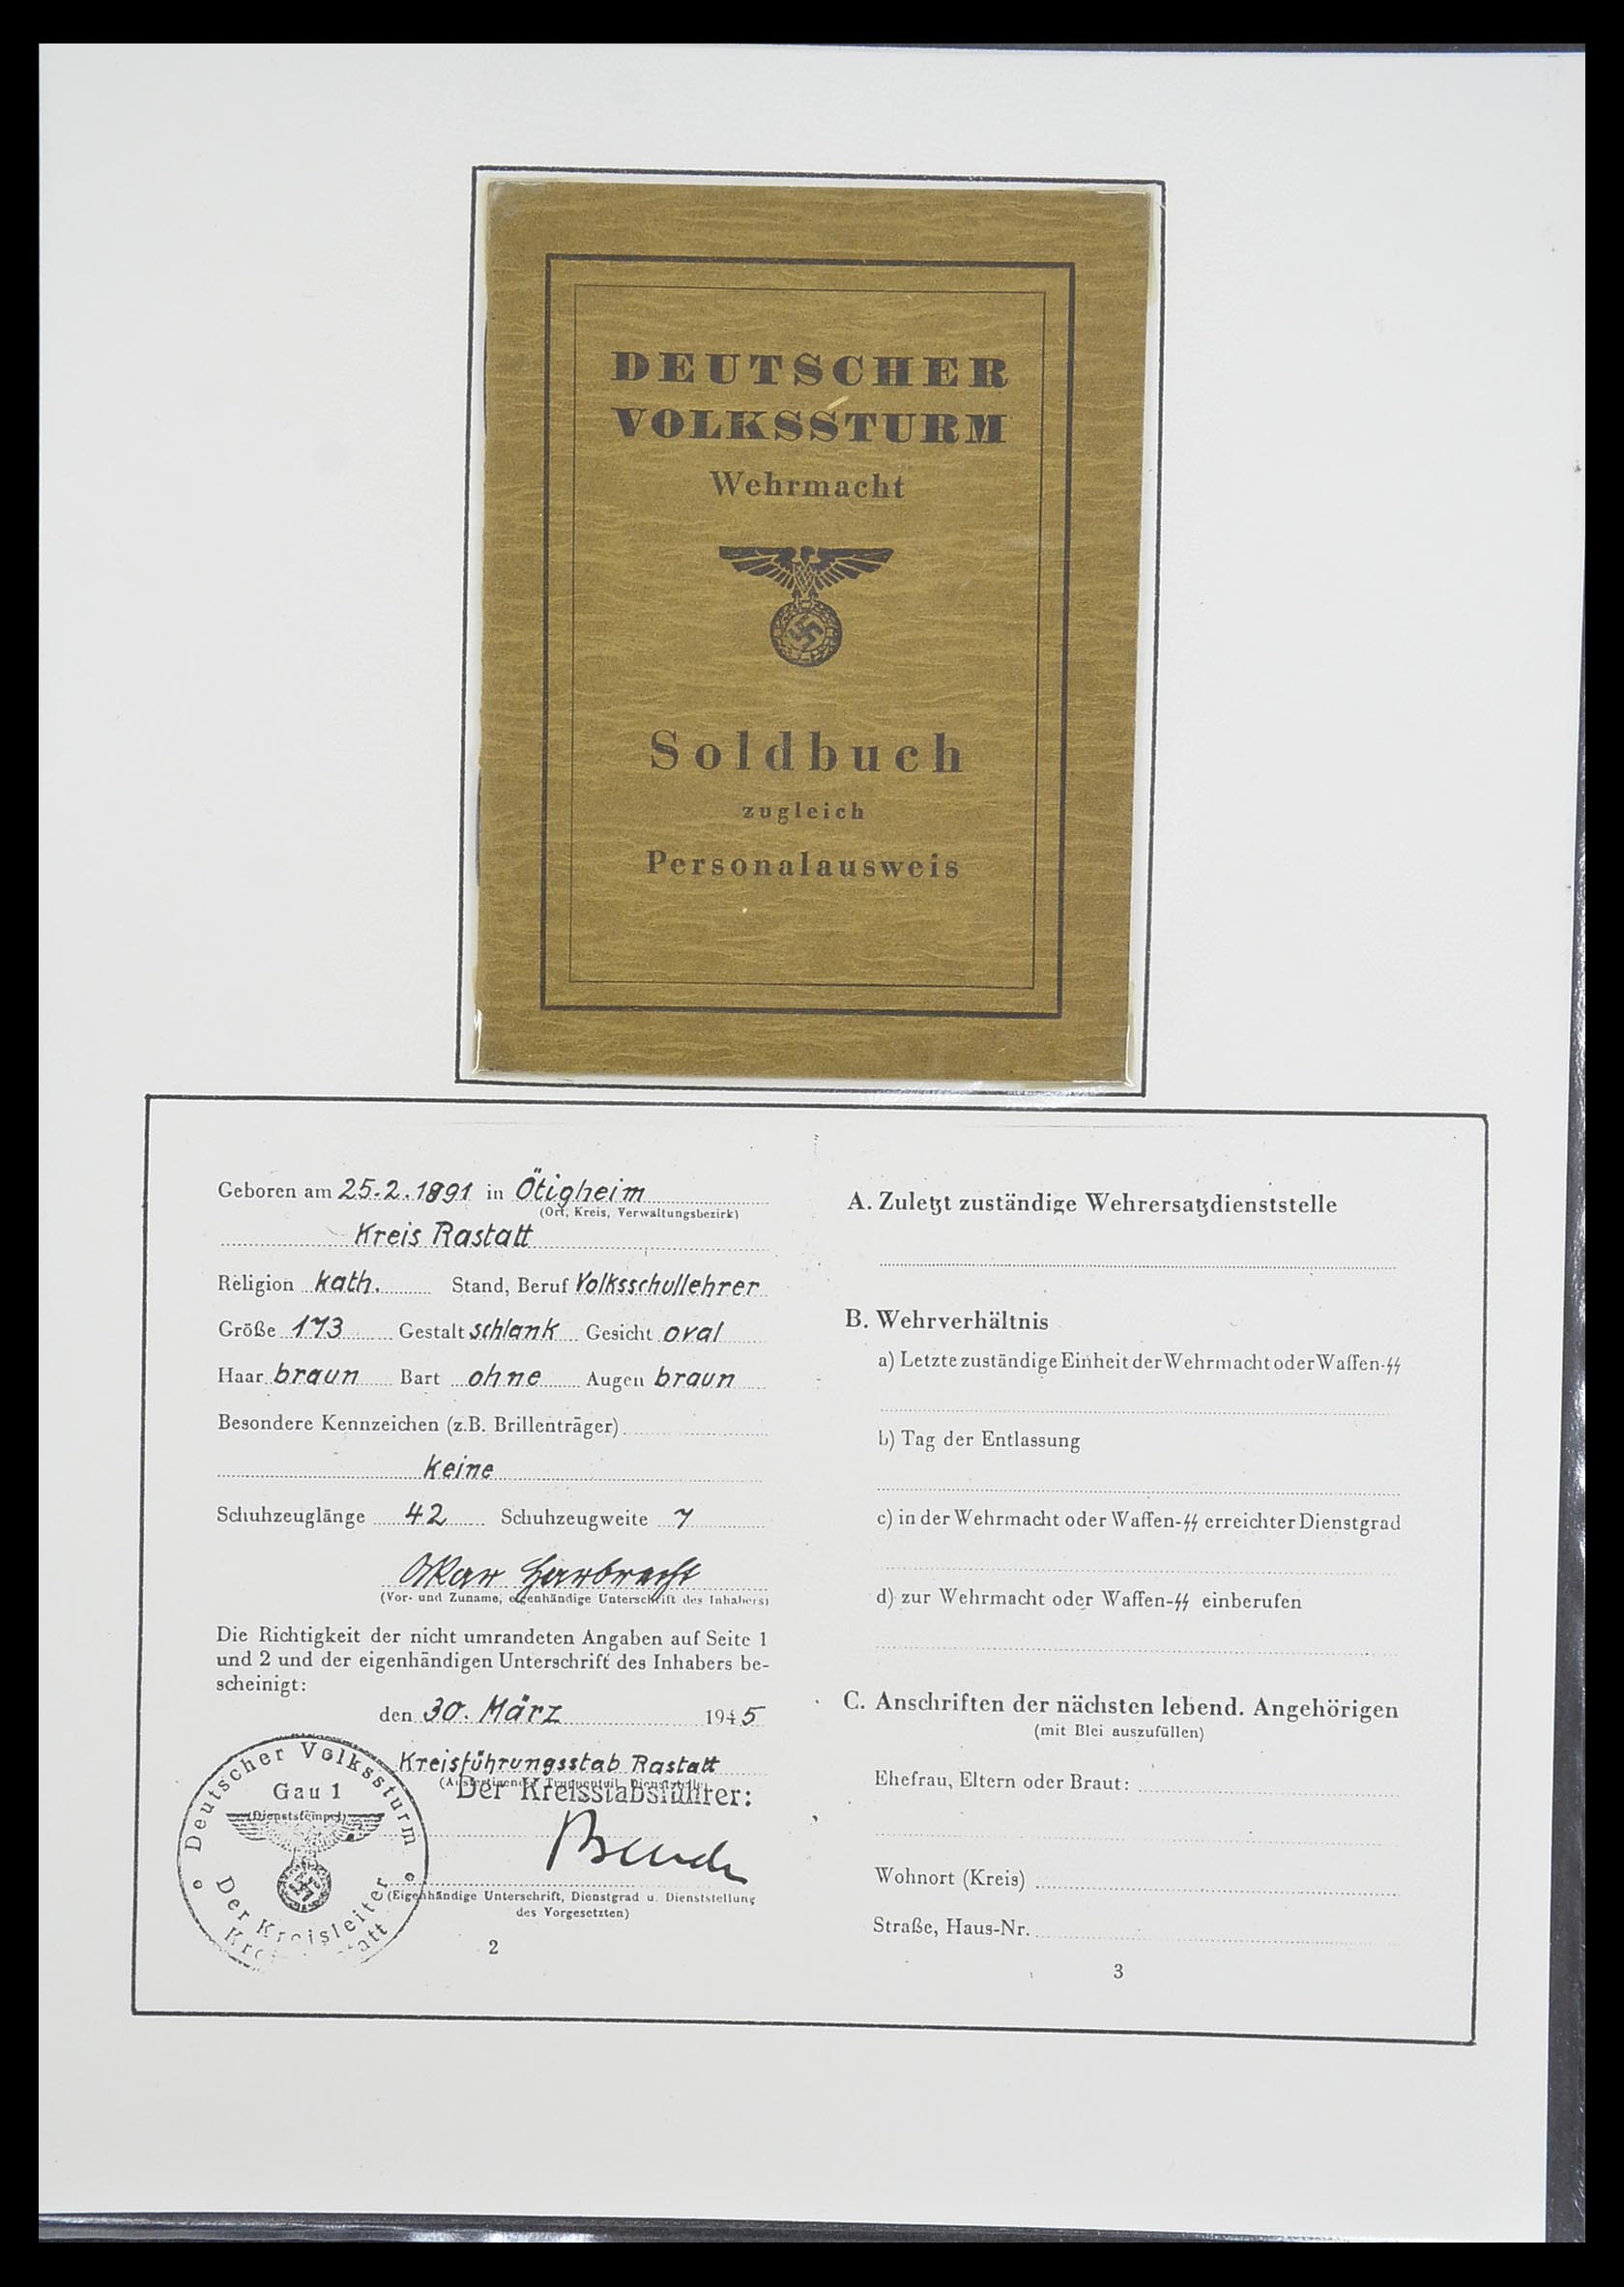 DEUTSCHER
VOLKSSTURM
Wehrmacht
Soldbuch
zugleich
Personalausweis
Geboren am 25.2.1891 in Ötigheim
(Ort, Kreis, Verwaltungsbezirk)
Kreis Rastatt
Religion kath. Stand, Beruf Volksschullehrer
Größe 173 Gestalt schlank Gesicht oval
Haar braun Bart ohne Augen braun
Besondere Kennzeichen (z.B. Brillenträger)
keine
Schuhzeuglänge 42 Schuhzeugweite 7
Oskar
(Vor- und Zuname, eigenhändige Unterschrift des Inhabers)
Die Richtigkeit der nicht umrandeten Angaben auf Seite 1
und 2 und der eigenhändigen Unterschrift des Inhabers be-
scheinigt:
den 30. März 1945
Kreisführungsstab Rastatt
(Ausfertigender Truppenteil, Dienststelle)
Der Kreisstabsführer:
Deutscher Volkssturm
Gau 1
(Dienststempel)
Der Kreisleiter
(Eigenhändige Unterschrift, Dienstgrad u. Dienststellung
des Vorgesetzten)
2
A. Zuletzt zuständige Wehrersatzdienststelle
B. Wehrverhältnis
a) Letzte zuständige Einheit der Wehrmacht oder Waffen-SS
b) Tag der Entlassung
c) in der Wehrmacht oder Waffen-SS erreichter Dienstgrad
d) zur Wehrmacht oder Waffen-SS einberufen
C. Anschriften der nächsten lebend. Angehörigen
(mit Blei auszufüllen)
Ehefrau, Eltern oder Braut:
Wohnort (Kreis)
Straße, Haus-Nr.
3